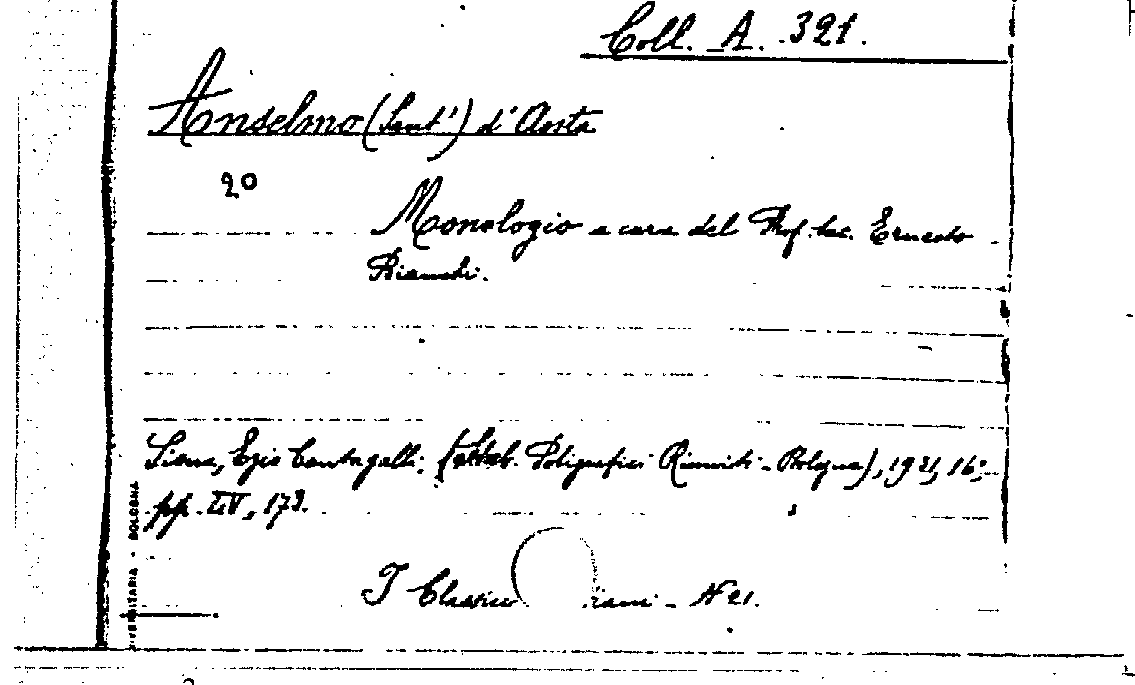 Coll. A. 321.
Anselmo (Sant') d'Aosta
20
Monologio a cura del Prof. Sac. Ernesto
Bianchi.
Siena, Ezio Cantagalli, (Stab. Poligrafici Riuniti - Bologna), 1931, 16°,
pp. LIV, 173.
I Classici iani - N 21.
IVERSITARIA - BOLOGNA